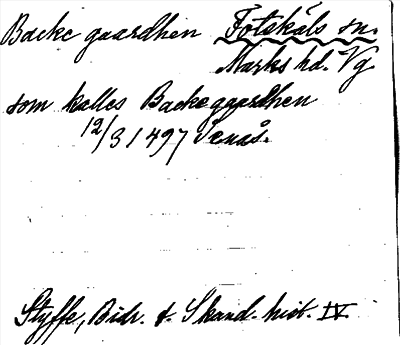 Backe gaardhen Fotskäls sn.
Marks hd. Vg
som kalles Backegaardhen
12/3 1497 Senäs.
Styffe, Bidr. t. Skand. hist. IV